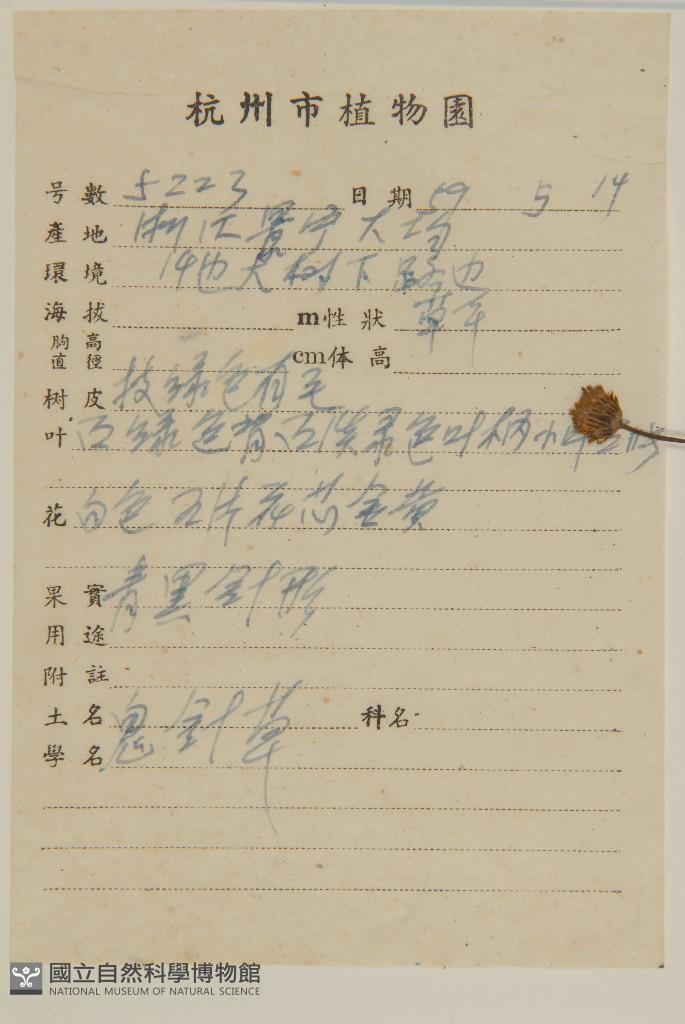 杭州市植物園
号數 5223 日期 59 5 14
產地 浙江景宁大均
環境 地大树下路边
海拔 m性狀 草本
胸高直徑 cm体高
树皮 枝绿色有毛
叶 面绿色背面淡绿色叶柄
花 白色五片花芯金黄
果實 青黑針形
用途
附註
土名 鬼針草 科名
學名
國立自然科學博物館
NATIONAL MUSEUM OF NATURAL SCIENCE